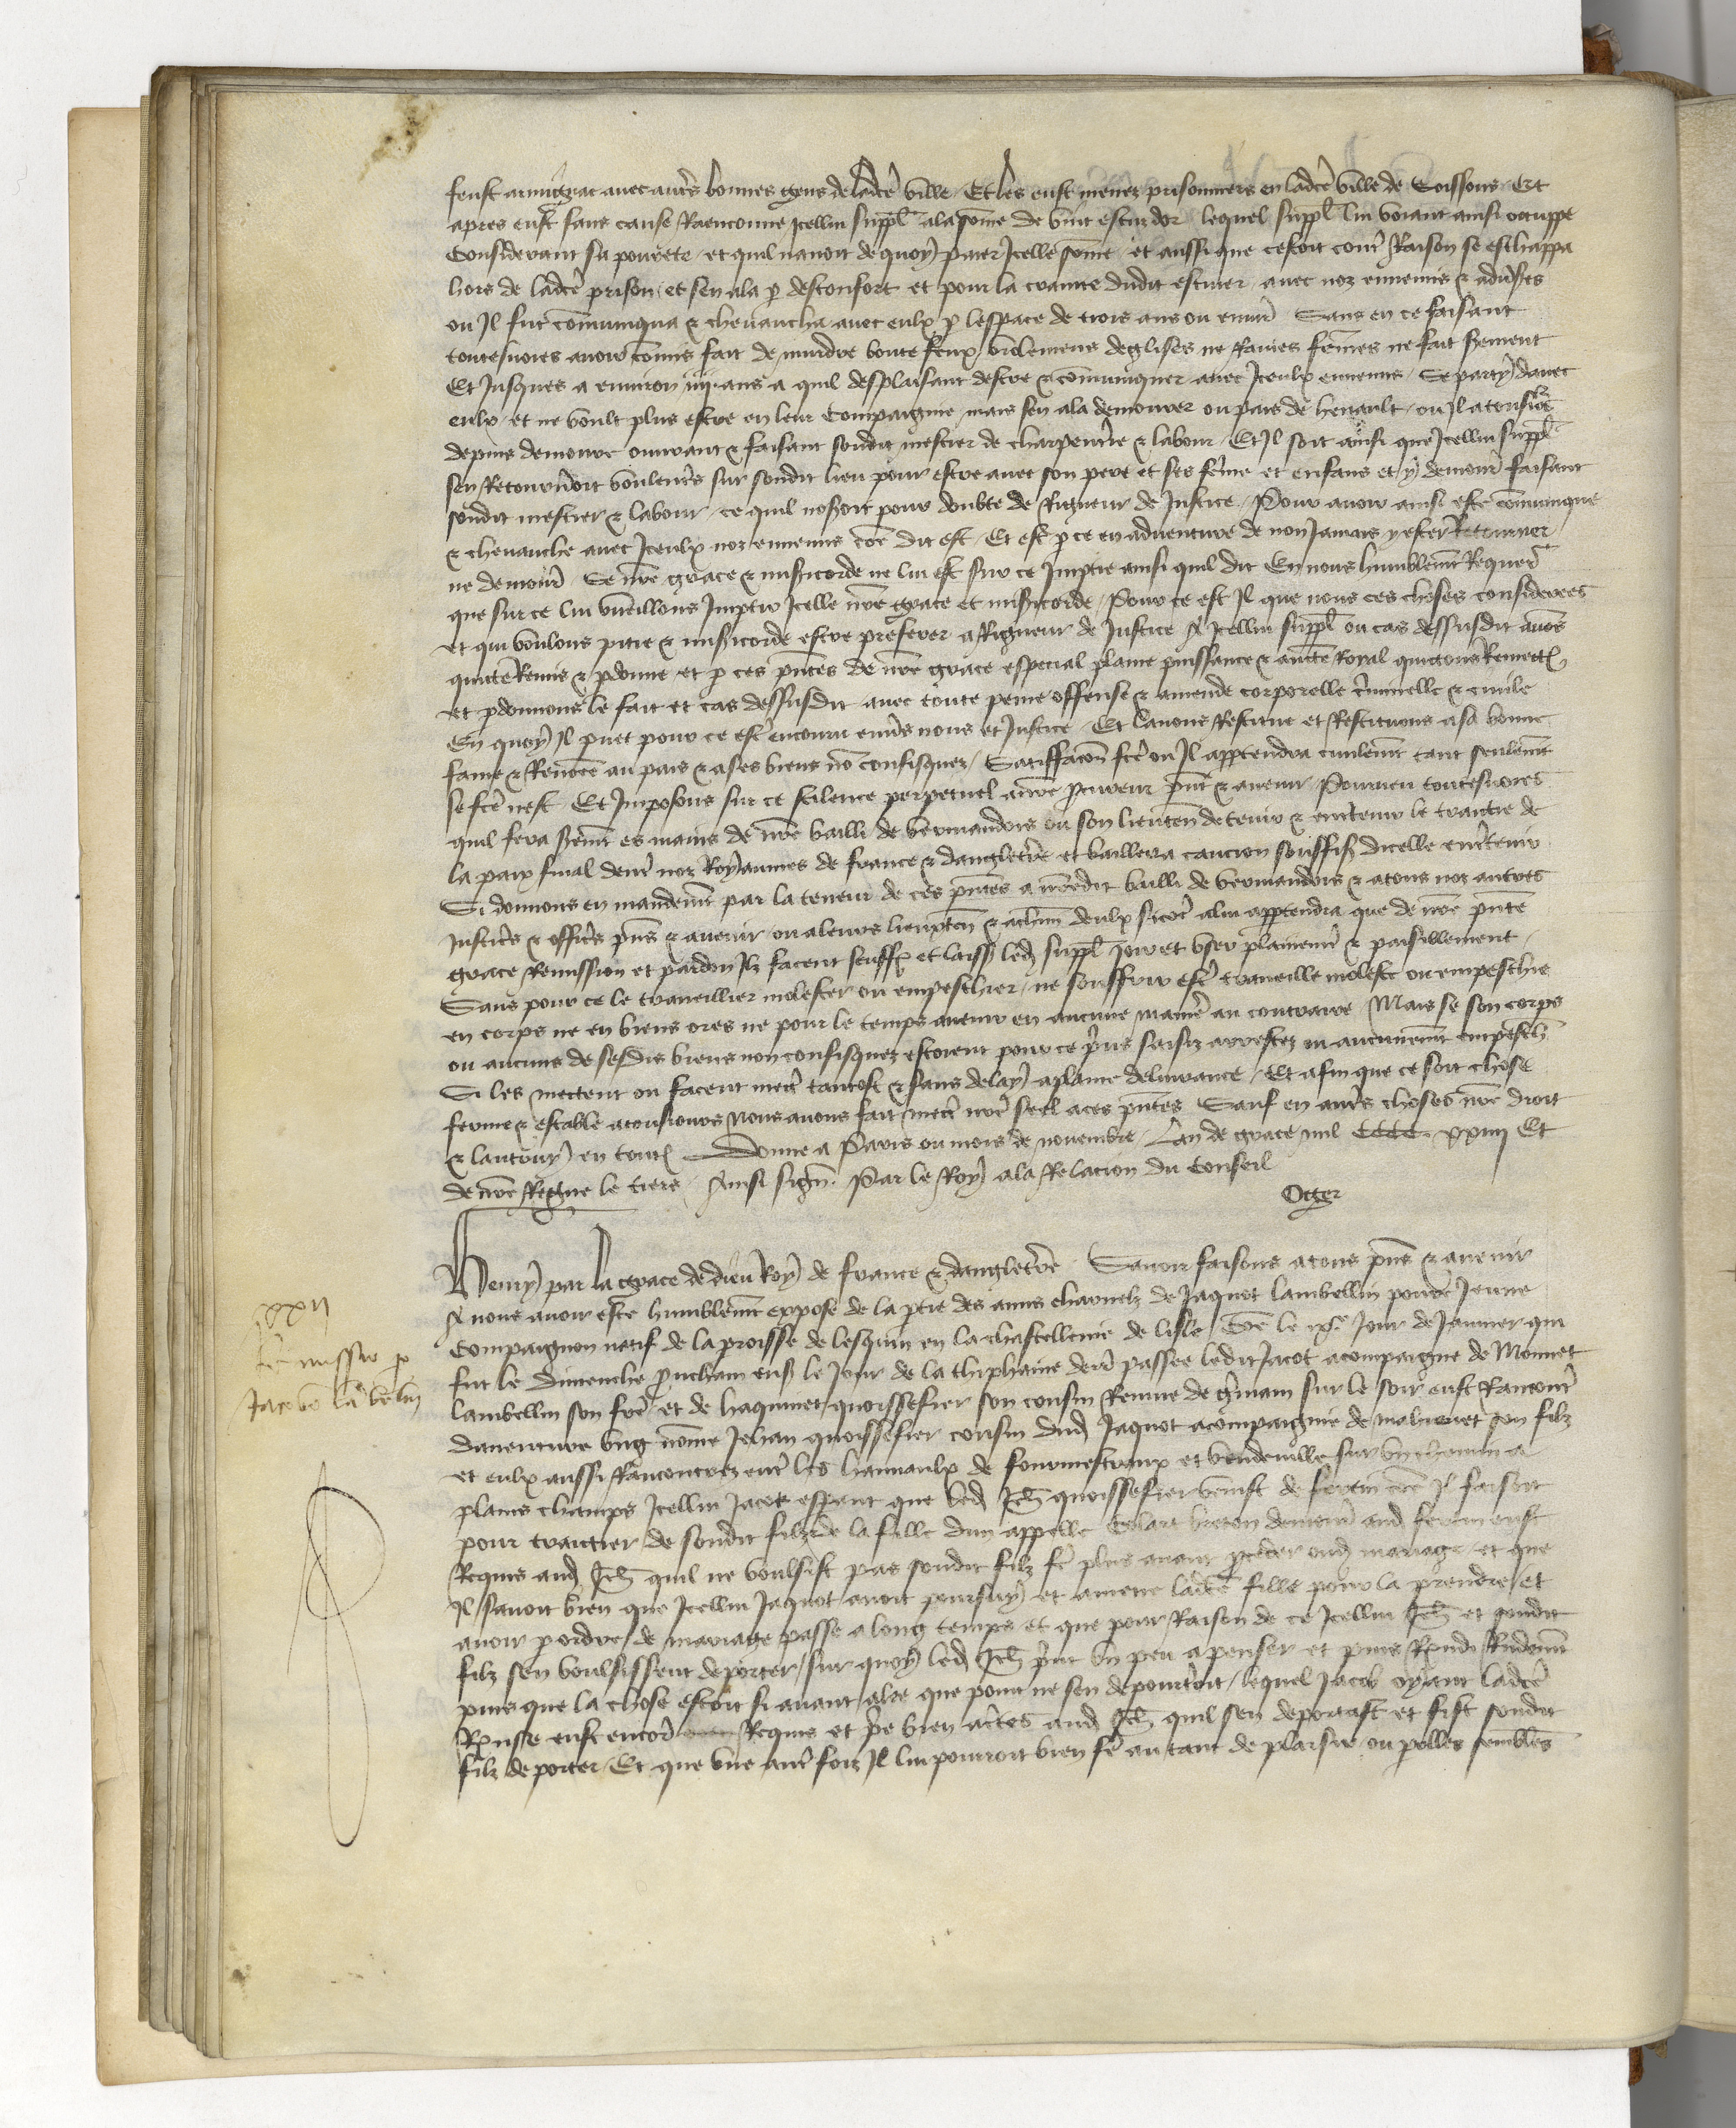 feust armignac avec autrs bonnes gens de ladte ville Et les eust menez prisonniers en ladte ville de Soissons Et
apres eust sans cause Raenconne Icellui suppl ala some de vint escuz dor lequel suppl lui voiant ainsi occuppe
Considerant sa povrete et quil navoit de quoy paier Icelle some et aussi que cestoit contr Raison se eschappa
hors de ladte prison et sen ala p desconfort et pour la crainte dudit escuier avec noz ennemis & advsres
ou Il fut comuniqua & chevaucha avec eulx p lespace de trois ans ou envir Sans en ce faisant
toutesvoies avoir comis fait de murdre boute feux violemens deglises ne Ravies femes ne fait serement
Et Jusques a environ iiij ans a quil desplaisant destre & comuniquer avec Iceulx ennemis Se party davec
eulx et ne voult plus estre en leur Compaignie mais sen ala demourer ou pais de henault ou Il a tousios
depuis demoure ouvrant & faisant sondit mestier de charpentrie & labour Et Il soit ainsi que Icellui suppl
sen Retourneroit voulentrs sur sondit lieu pour estre avec son pere et ses feme et enfans et y demour faisant
sondit mestier & labour ce quil noseroit pour doubte de Rigueur de Justice Pour avoir ainsi este comunique
& chevauche avec Iceulx noz ennemis coe dit est Et est p ce en adventure de non Jamais y estre Retourner
ne demour Se nre grace & misicorde ne lui est sur ce Imptie ainsi quil dit En nous humblemt Requer
que sur ce lui vueillons Imptir Icelle nre grace et misicorde Pour ce est Il que nous ces choses considerees
et qui voulons pitie & misicorde estre preferer a Rigueur de Justice A Icellui suppl ou cas dessusdit avos
quicte Remis & pdonne et p ces pntes de nre grace especial plaine puissance & aucte Royal quictons Remect
et pdonnons le fait et cas dessusdit avec toute peine offense & amende corporelle criminelle & civile
En quoy Il puet pour ce estr encouru envrs nous et Justice Et lavons Restitue et Restituons a sa bonne
fame & Renoee au pais & a ses biens no confisquez Satiffacon fce ou Il apptendra civilemt tant seulemt
se fce nest Et Imposons sur ce scilence perpetuel a nre procureur pnt & avenir Pourveu toutesvoies
quil fera seremt es mains de nre bailli de vermandois ou son lieuten de tenir & entretenir le traictie de
la paix final dentr noz Royaumes de france & dangletrre et baillera caucion souffis dicelle entretenir
Si donnons en mandemt par la teneur de ces pntes a nredit bailli de vermandois & atous noz autres
Justicrs & officrs pns & avenir ou aleurs lieuxten & achun deulx sicoe alui apptendra que de nre pnte
grace Remission et pardon Ilz facent seuffr et laiss led suppl Joir et user plainemt & paisiblement
Sans pour ce le traveillier molester ou empeschier ne souffrir estr traveille moleste ou empeschie
en corps ne en biens ores ne pour le temps avenir en aucune manier au contraire Mais se son corps
ou aucuns de sesdis biens non confisquez estoient pour ce prins saisiz arrestez ou aucunemt empesch
Si les mectent ou facent mectr tantost & sans delay a plaine delivrance Et afin que ce soit chose
ferme & estable atousiours Nous avons fait mectr notr seel a ces pntes Sauf en autrs choses nre droit
& lautruy en toutes Donne a Paris ou mois de novembre Lan de grace mil CCCC xxiiij Et
de nre Regne le tiers Ainsi sign Par le Roy ala Relacion du Conseil
Oger
Henry par la grace de dieu Roy de france & dangletrre Savoir faisons a tous pns & avenir
A nous avoir este humblemt expose de la ptie des amis charnelz de Jaquot lambellin povre Jeune
Compaignon natif de la proisse de lesquin en la chastellenie de lisle Coe le Jour de Janvier qui
fut le dimenche prouchain ens le Jour de la thiphaine derr passee ledit Jacot acompaigne de Monnet
lambellin son frere et de haquinet quoissefier son cousin Remue de germain sur le soir eust Rancontr
daventure ung nome Jehan quoissefier cousin dud Jaquot acompaignie de son filz
et eulx aussi Rancontrez entr les hameaulx de fourmestraux et vendeville sur un chemin a
plains champs Icellui Jacot espant que led Jeh quoissefier venist de coe Il faisoit
pour traictier de sondit filz de la fille dun appelle breton demour aud eust
Requis aud Jeh quil ne voulsist pas sondit filz fe plus avant proceder oud mariage et que
Il savoit bien que Icellui Jaquot avoit poursuy et amene ladte fille pour la prendre et
avoir p ordre de mariage passe a long temps et que pour Raison de ce Icellui Jeh et sondit
filz sen voulsissent deporter sur quoy led Jeh prit un peu a penser et puis Rondi Rudemt
puis que la chose estoit si avant alee que point ne sen deporteroit lequel Jacob oyant ladte
Rponse eust encor Requis et prie bien actes aud Jeh quil sen deportast et fist sondit
filz deporter Et que une autr foiz Il lui pourroit bien fe autant de plaisir ou pelles sembles
xxii
Remissio p
Jacobo labelin